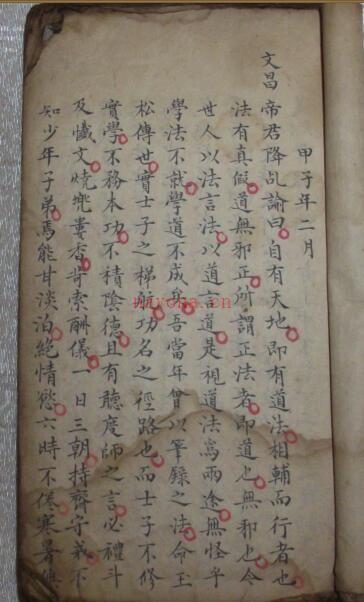 甲子年二月
文昌帝君降乩諭曰自有天地即有道法相輔而行者也
法有真假道無邪正所謂正法者即道也無邪也今
世人以法言法以道言道是視道法為兩途無怪乎
學法不就學道不成矣吾當年曾以筆錄之法命玉
松傳世實士子之梯功名之徑路也而士子不修
實學不務本功不積陰德且有聽度師之言必禮斗
及懺文燒兜婁香索酬儀一日三朝持齊守戒不
知少年子弟焉能甘淡泊絕情慾六時不倦寒暑